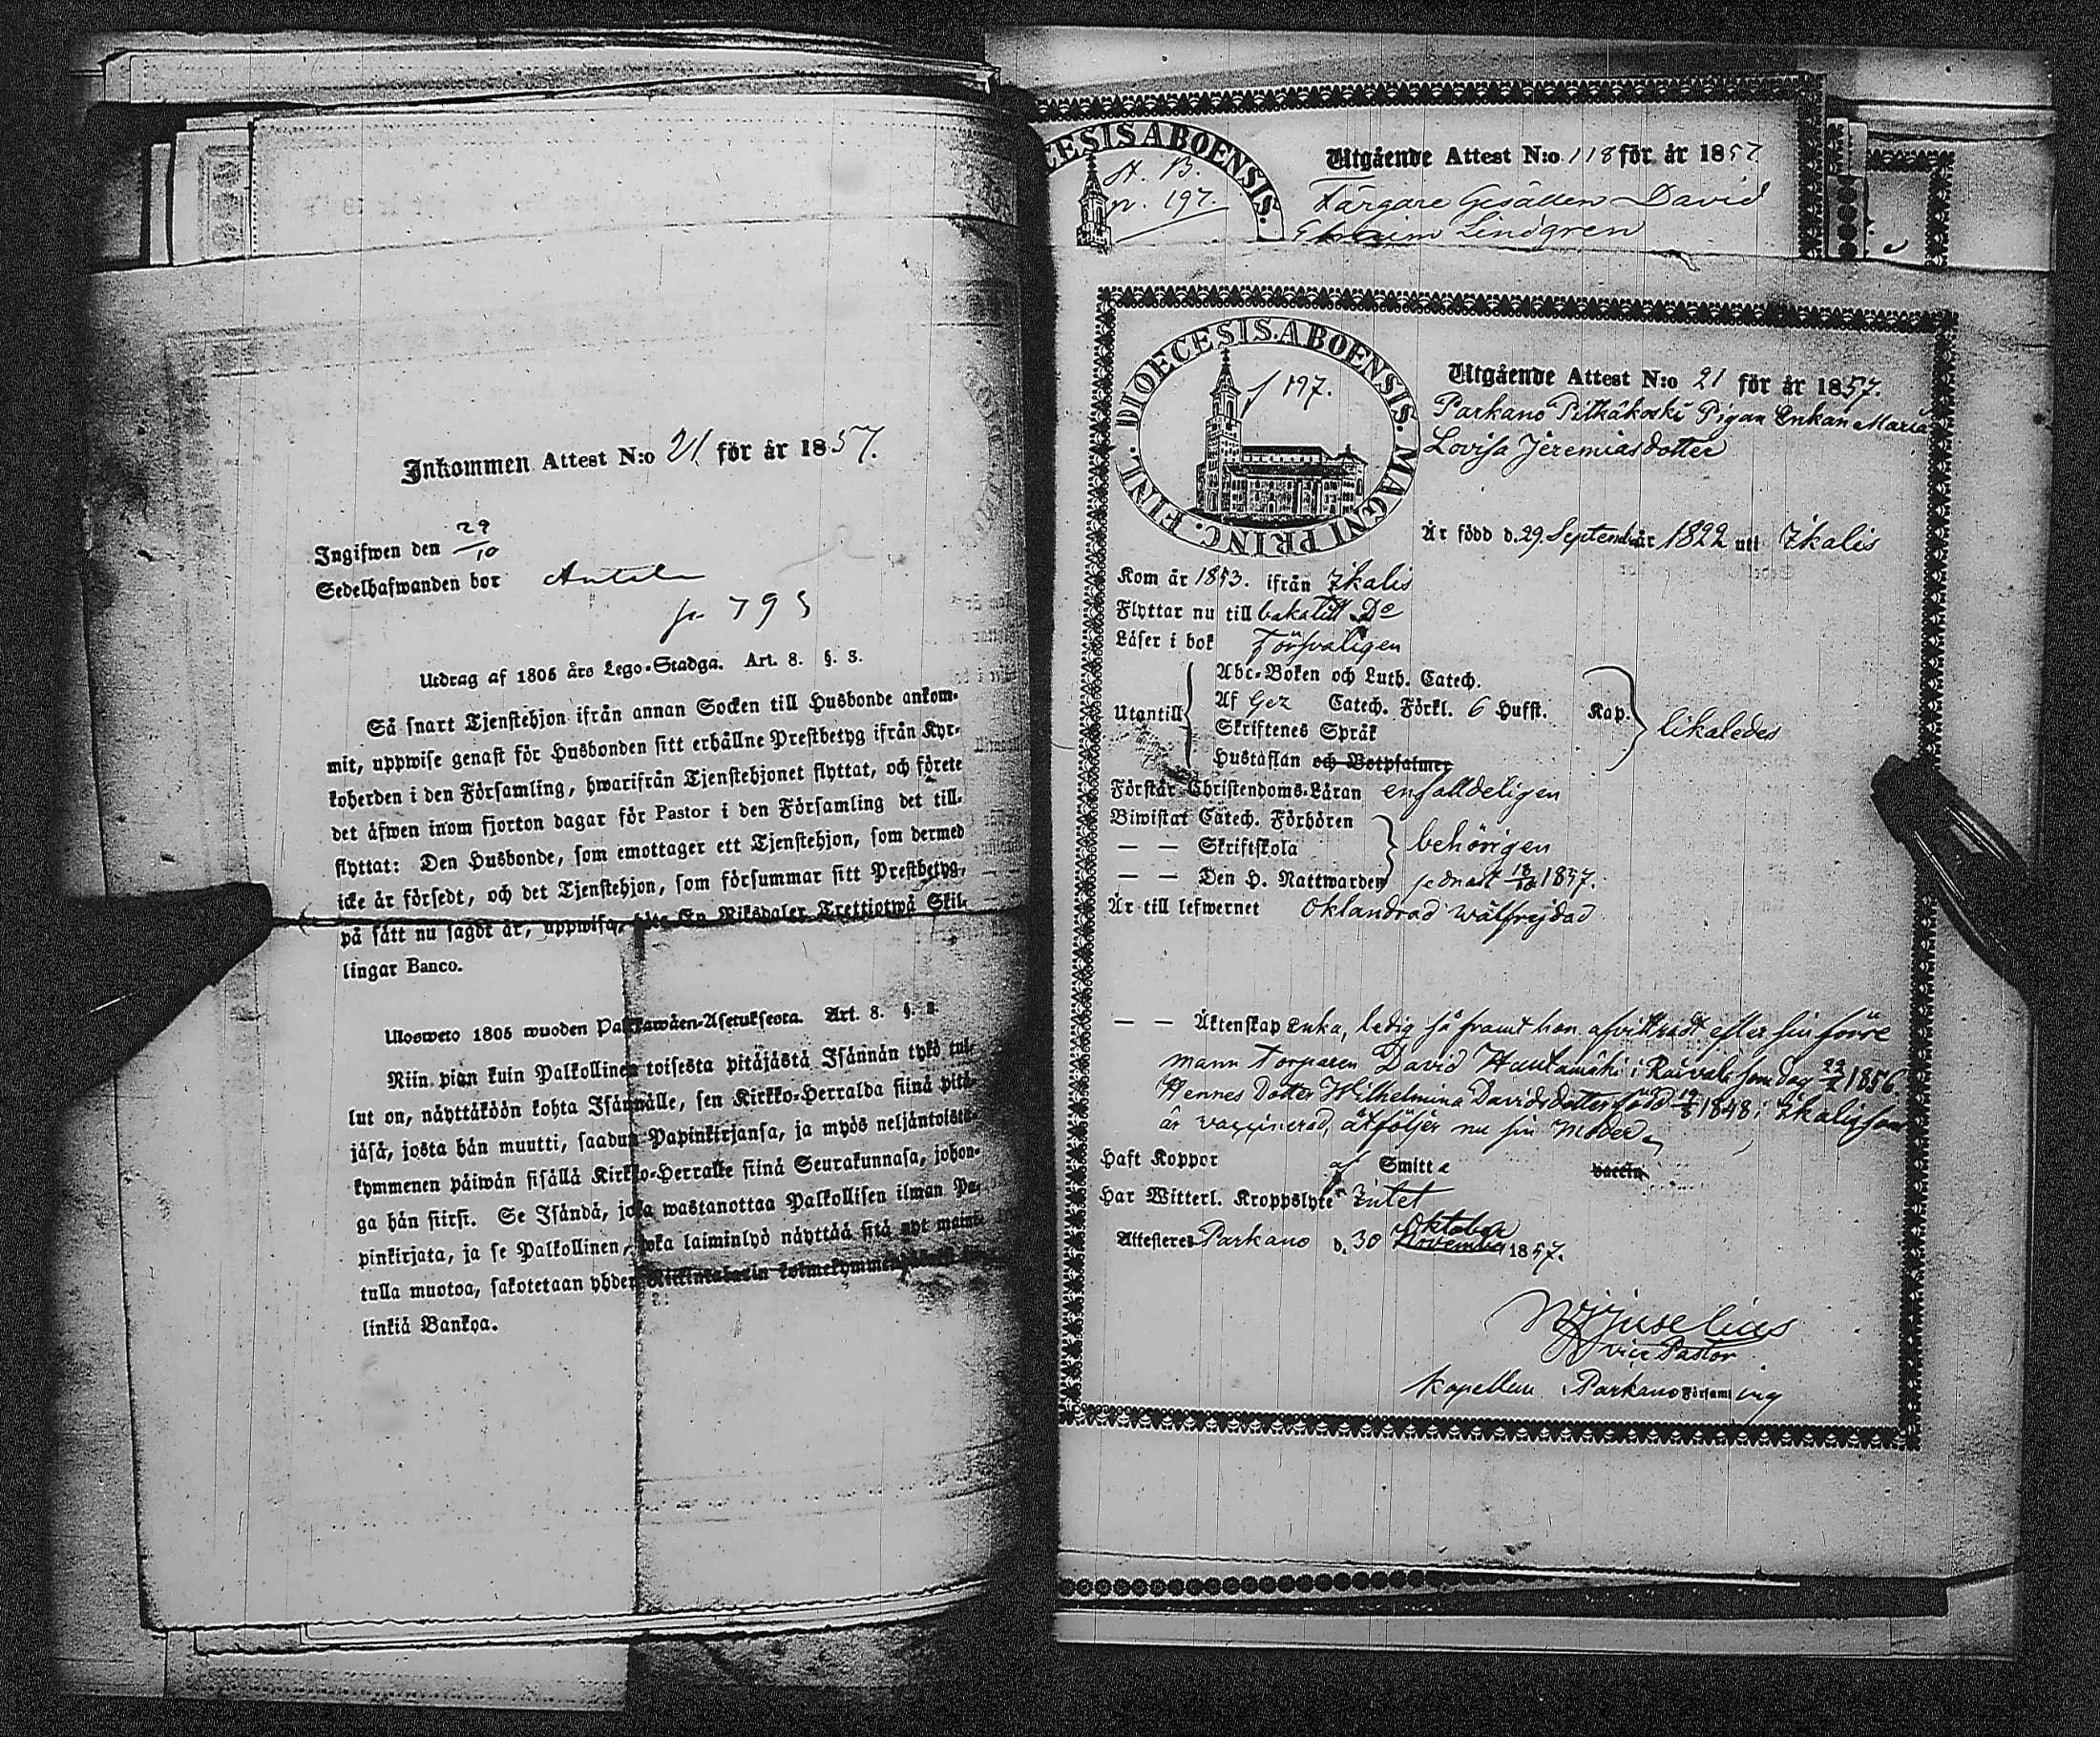 Inkommen Attest N:o 21 för år 1857.
Ingifwen den 29/10
Sedelhafwanden bor
p. 795
Utdrag af 1805 års Lego-Stadga. Art. 8. §. 3.
Så snart Tjenstehjon ifrån annan Socken till Husbonde ankom-
mit, uppwise genast för Husbonden sitt erhållne Prestbetyg ifrån Kyr-
koherden i den Församling, hwarifrån Tjenstehjonet flyttat, och förete
det äfwen inom fjorton dagar för Pastor i den Församling det till-
flyttat: Den Husbonde, som emottager ett Tjenstehjon, som dermed
icke är försedt, och det Tjenstehjon, som försummar sitt Prestbetyg,
på sätt nu sagdt är, uppwisa, böte En Riksdaler Trettiotwå Skil-
lingar Banco.
Ulosweto 1805 wuoden Palkkawäen-Asetuksesta. Art. 8. §. 3.
Niin pian kuin Palkollinen toisesta pitäjästä Isännän tykö tul-
lut on, näyttäköön kohta Isännälle, sen Kirkko-Herralda siinä pitä-
jäsä, josta hän muutti, saadun Papinkirjansa, ja myös neljäntoista-
kymmenen päiwän sisällä Kirkko-Herralle siinä Seurakunnasa, johon-
ga hän siirsi. Se Isändä, joka wastanottaa Palkollisen ilman Pa-
pinkirjata, ja se Palkollinen, joka laiminlyö näyttää sitä nyt maini-
tulla muotoa, sakotetaan yhden Riikintalarin kolmekymmentä
linkiä Bankoa.
CESIS ABOENSIS.
n. 197.
Utgående Attest N:o 118 för år 1857
Färgare Gesällen David
Lindgren
DIOECESIS. ABOENSIS. MAGNI PRINC. FINL.
f 197.
Utgående Attest N:o 21 för år 1857.
Parkano Pitkäkoski Pigan Enkan Maria
Lovisa Jeremiasdotter
Är född d. 29 September år 1822 uti Ikalis
Kom år 1853. ifrån Ikalis
Flyttar nu till bakatill Do
Läser i bok Försvaligen
Utantill
Abc-Boken och Luth. Catech.
Af Gez Catech. Förkl. 6 Hufst. Kap.
Skriftenes Språk
Hustaflan och Botpsalmer
likaledes
Förstår Christendoms-Läran enfalldeligen
Biwistat Catech. Förhören
— — Skriftskola
behörigen
— — Den H. Nattwarden sednast 18/10 1857.
Är till lefwernet Oklandrad wälfrejdad
— — Äktenskap Enka, ledig så framt hon afvittradt efter sin förre
mann Torparen David Hautamäki i Raivala som dog 22/2 1856.
Hennes Dotter Wilhelmina Davidsdotter född 19/5 1848 i Ikalis som
är vaccinerad, åtföljer nu sin Moder
Haft Koppor af Smitta vaccin
Har Witterl. Kroppslyte Intet
Attesteres Parkano d. 30 Oktober November 1857.
vice Pastor
Kapellan i Parkano Församling